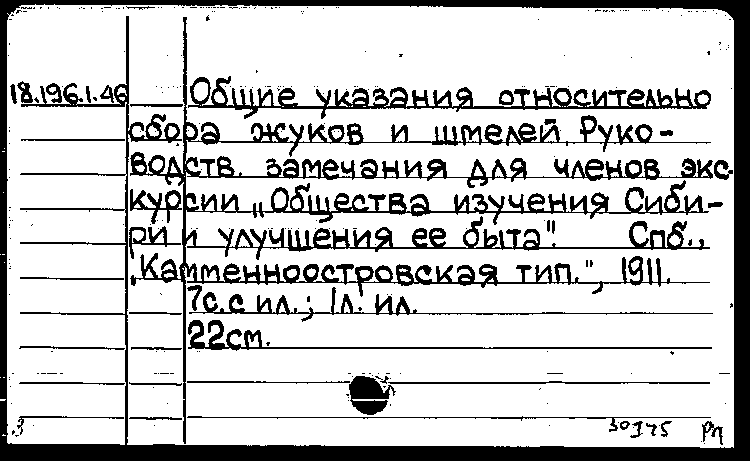 18.196.1.46 Общие указания относительно
сбора жуков и шмелей. Руко-
водств. замечания для членов экс-
курсии „Общества изучения Сиби-
ри и улучшения ее быта". Спб.,
„Камменноостровская тип.", 1911.
7с.с ил.; 1л. ил.
22см.
3